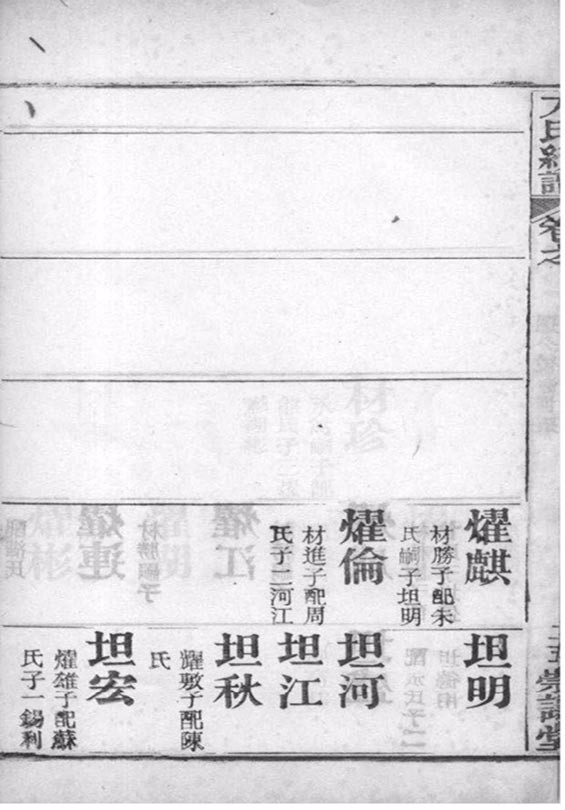 卷之
燿麒
材勝子配朱
氏嗣子坦明
燿倫
材進子配周
氏子二河江
坦明
坦河
坦江
坦秋
子配陳
氏
坦宏
燿雄子配蘇
氏子一錫利